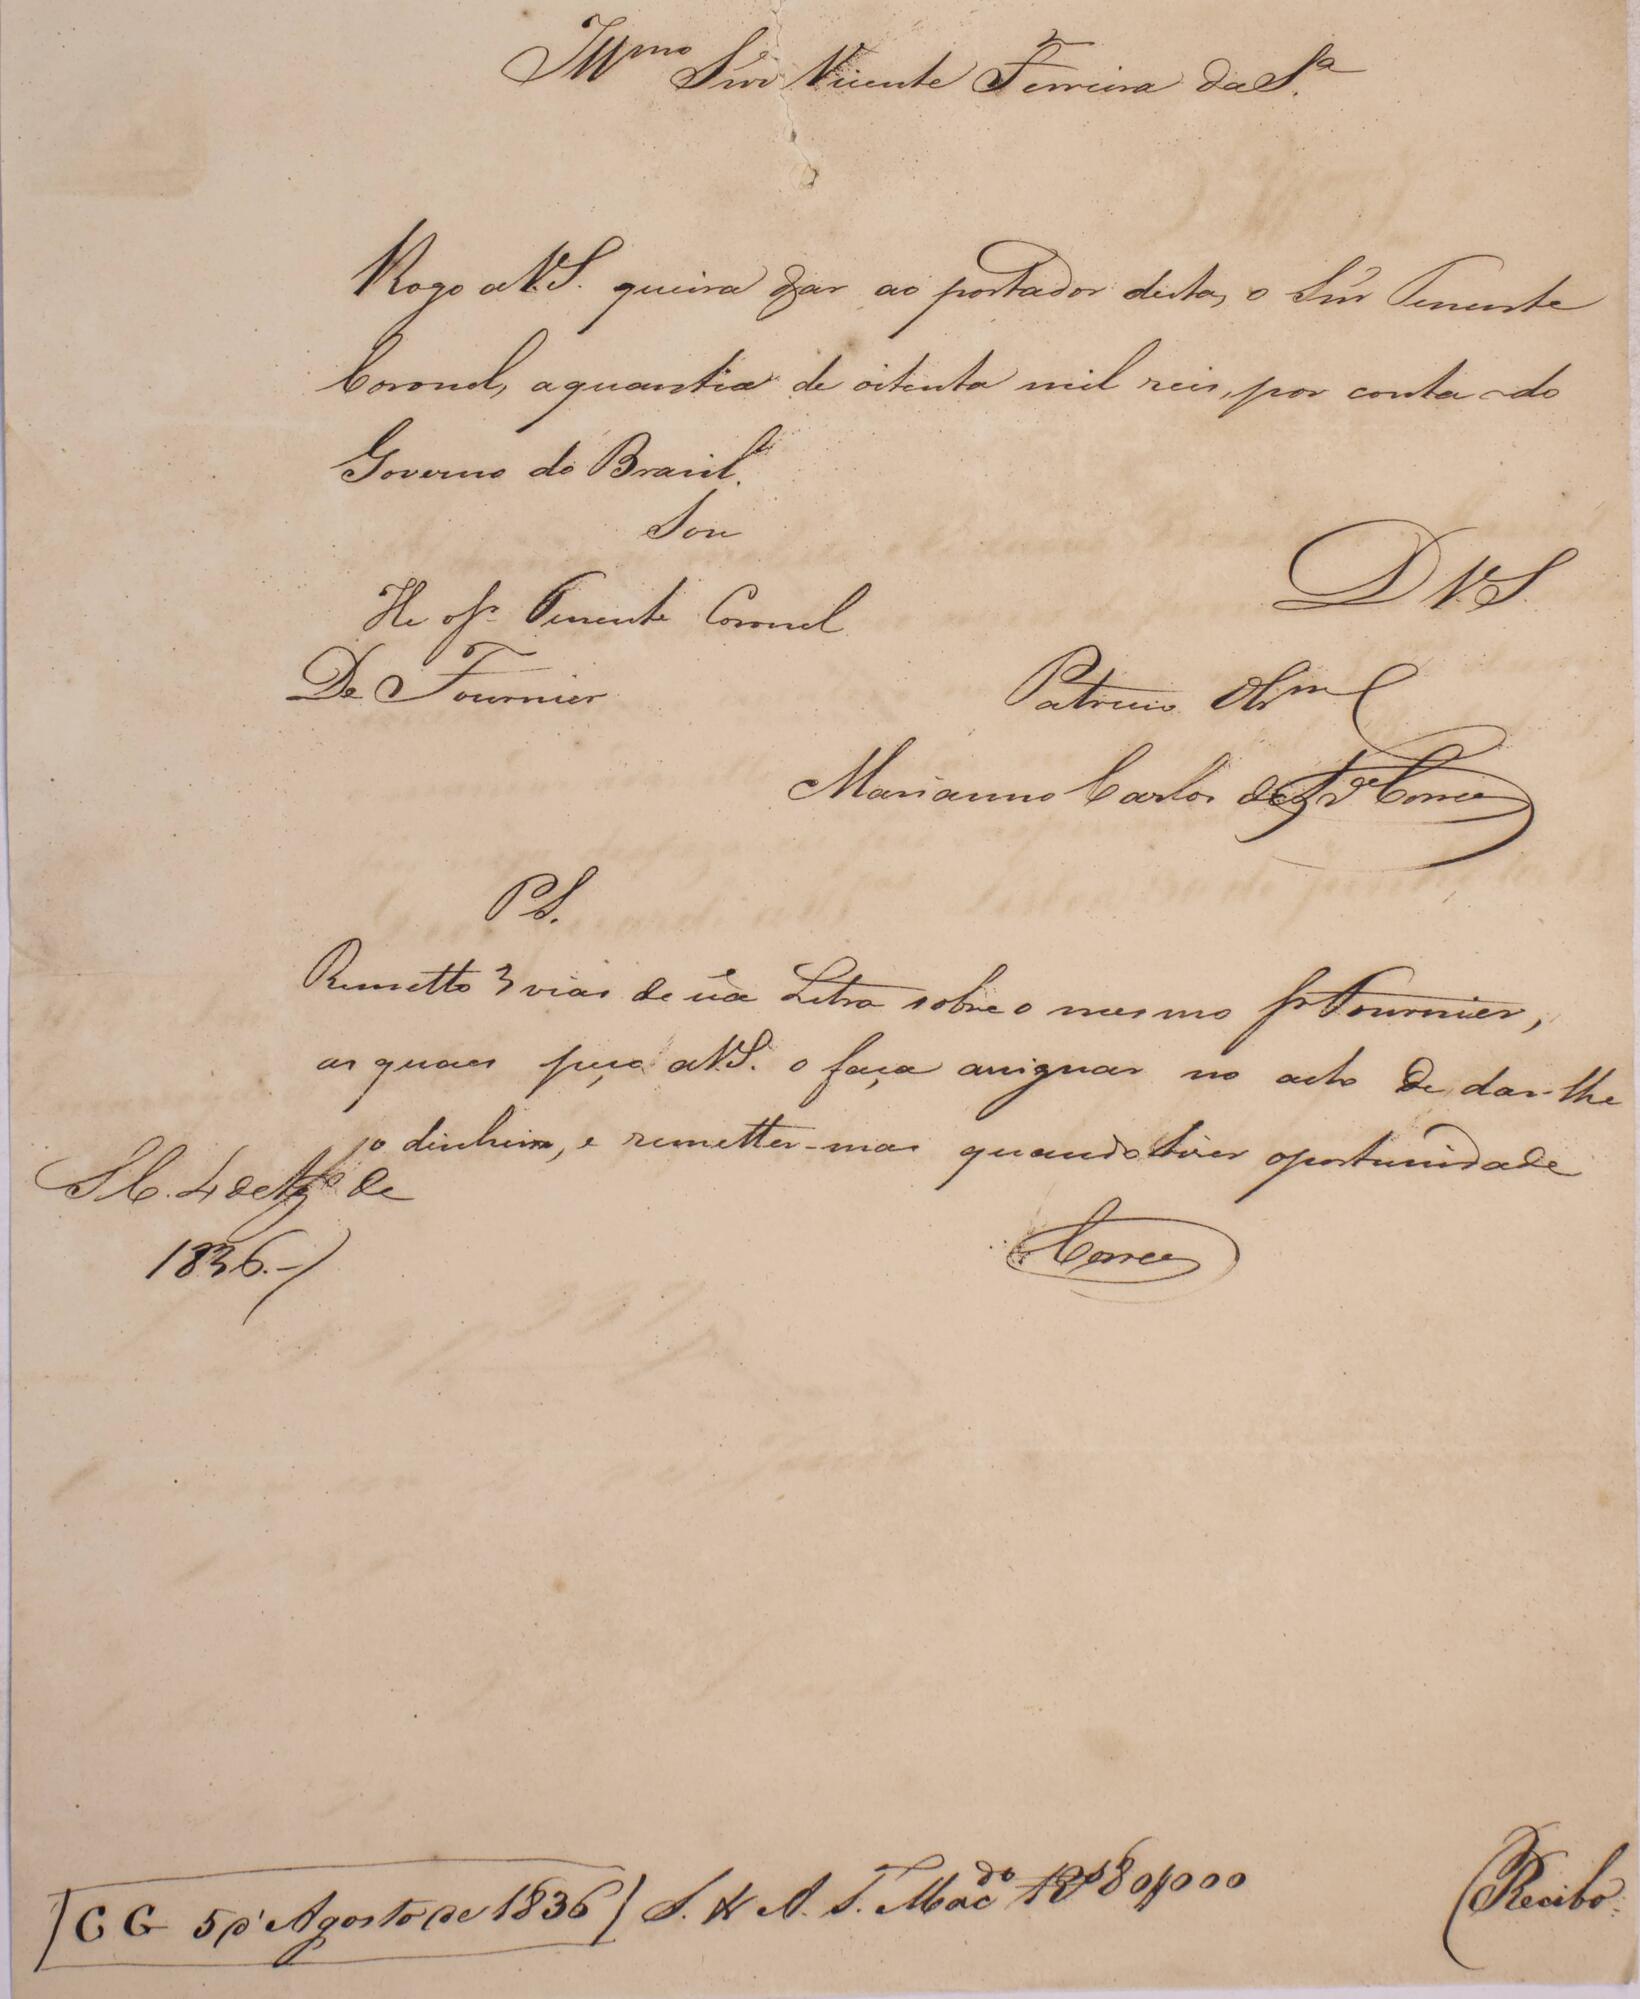 Illmo Snr Vicente Ferreira da Sa
Rogo a V.S. queira dar ao portador desta, o Snr Tenente
Coronel, a quantia de oitenta mil reis, por conta do
Governo do Brasil.
Sou
D V.S.
He o Sr Tenente Coronel
De Fournier
Patricio
Marianno Carlos de Correa
P.S.
Remetto 3 vias de ũa Letra sobre o mesmo Sr Fournier,
as quaes peço a V.S. o faça assignar no acto de dar-lhe
o dinheiro, e remetter-mas quando tiver oportunidade
S C. 4 de Agto de
1836.
Correa
C G 5 d' Agosto de 1836 S. A. T. Macdo Rs 80$000
Recibo.